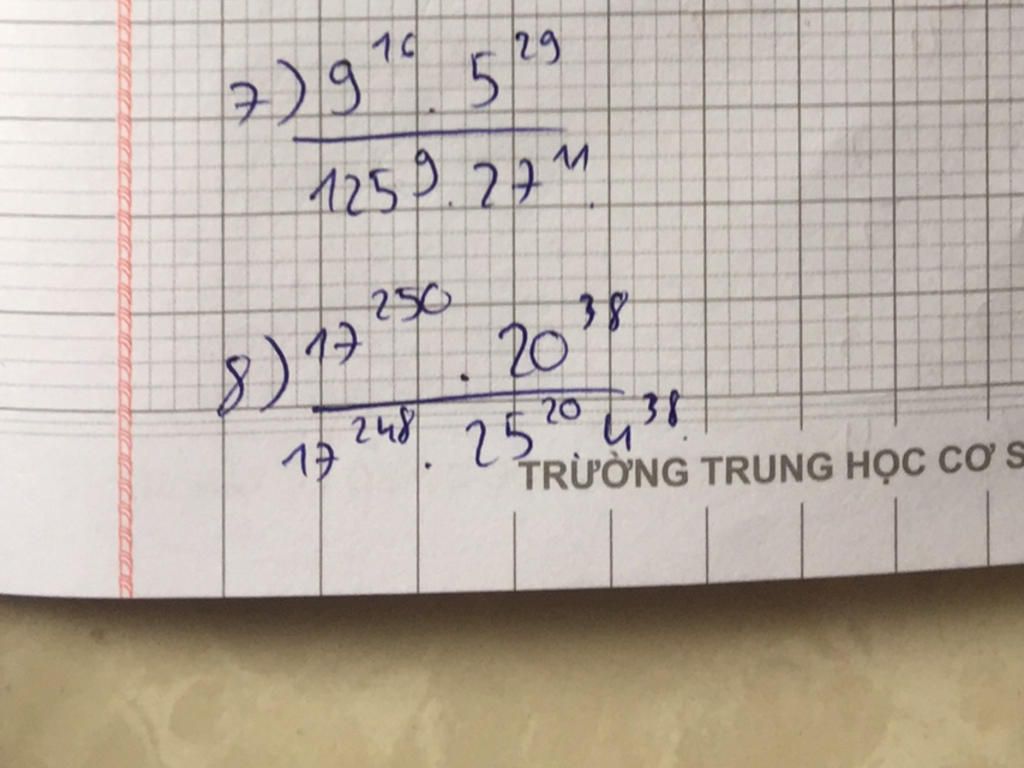 7) 9^16 . 5^29
125^9 . 27^11 .
8) 17^250 . 20^38
17^248 . 25^20 4^38 .
TRƯỜNG TRUNG HỌC CƠ S